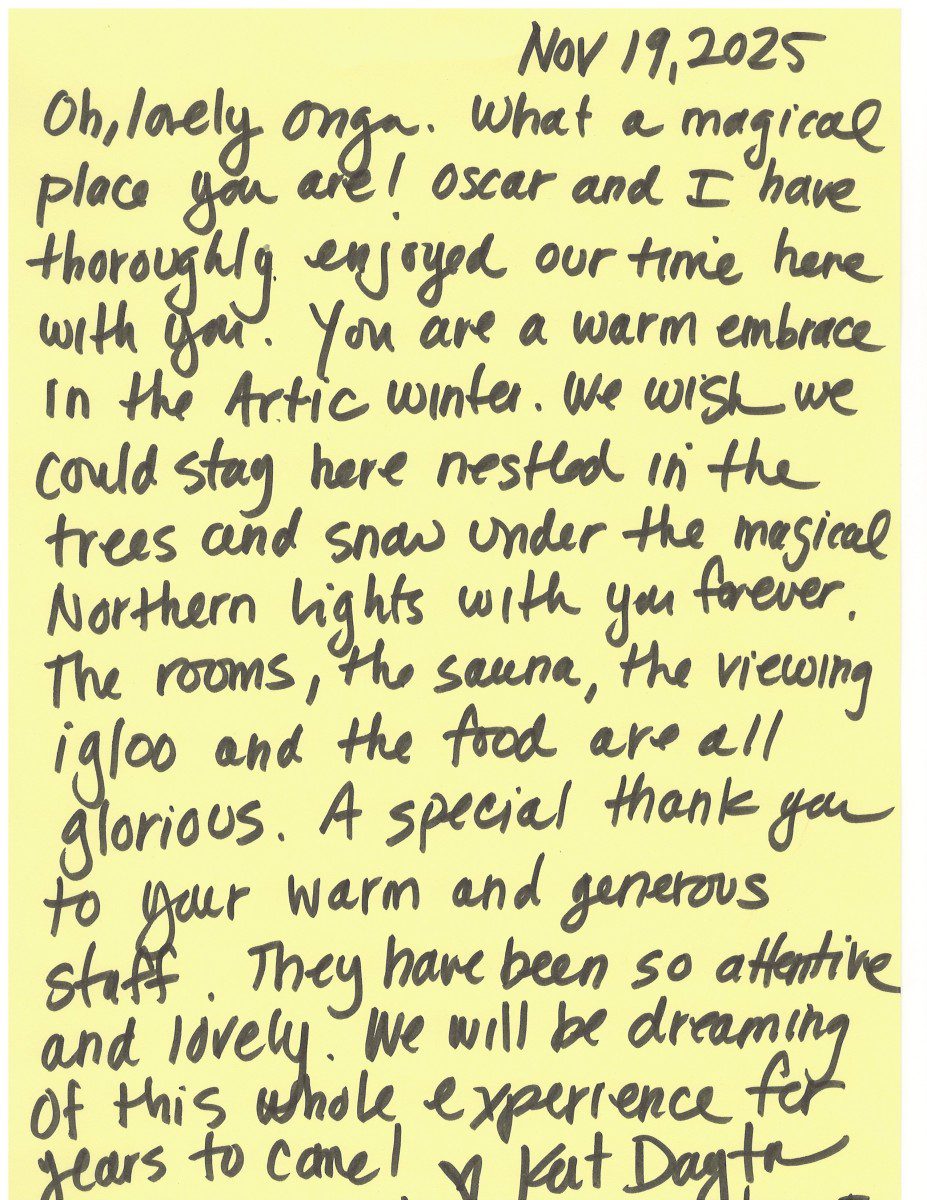 Nov 19, 2025
Oh, lovely Onga. What a magical
place you are! Oscar and I have
thoroughly enjoyed our time here
with you. You are a warm embrace
in the Artic winter. We wish we
could stay here nestled in the
trees and snow under the magical
Northern Lights with you forever.
The rooms, the sauna, the viewing
igloo and the food are all
glorious. A special thank you
to your warm and generous
staff. They have been so attentive
and lovely. We will be dreaming
of this whole experience for
years to come! ♡ Kat